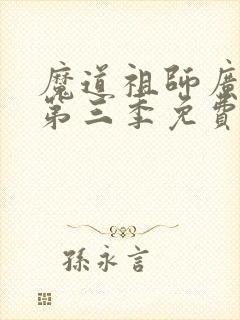 魔道祖師廣
第三季免費
孫永言